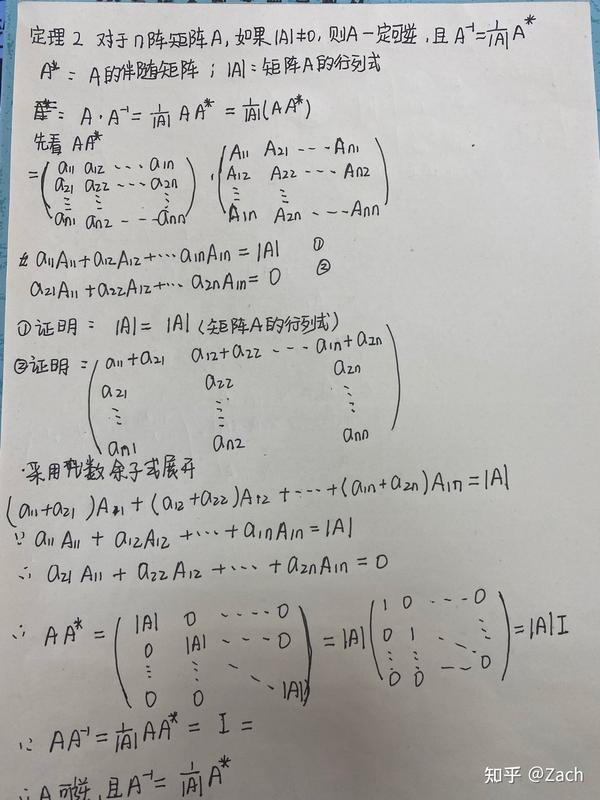 定理2 对于n阵矩阵A, 如果|A|≠0, 则A一定可逆, 且 A⁻¹=1/|A| A*
A* = A的伴随矩阵 ; |A| = 矩阵A的行列式
= A·A⁻¹ = 1/|A| AA* = 1/|A|(AA*)
先看 AA*
=(a11 a12 ··· a1n · (A11 A21 --- An1
a21 a22 ··· a2n A12 A22 --- An2
⋮ ⋮ ⋮ ⋮ ⋮
an1 an2 --- ann) A1n A2n --- Ann)
a11A11+a12A12+··· a1nA1n=|A| ①
a21A11+a22A12+··· a2nA1n=0 ②
①证明: |A|=|A| (矩阵A的行列式)
②证明= (a11+a21 a12+a22 --- a1n+a2n
a21 a22 a2n
⋮ ⋮ ⋮
an1 an2 ann)
·采用代数余子式展开
(a11+a21)A11+(a12+a22)A12+···+(a1n+a2n)A1n=|A|
∵ a11A11+a12A12+···+a1nA1n=|A|
∴ a21A11+a22A12+···+a2nA1n=0
∴ AA* = (|A| 0 ---- 0 = |A| (1 0 --- 0 = |A|I
0 |A| --- 0 0 1 ⋱ ⋮
⋮ ⋮ ⋱ ⋮ ⋮ 0
0 0 |A|) 0 0)
∵ AA⁻¹ = 1/|A| AA* = I =
∴ A可逆, 且A⁻¹ = 1/|A| A*
知乎 @Zach